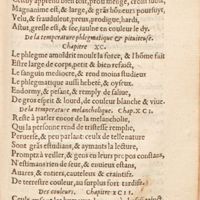 Magnanime est, & large, & grās hõneurs poursuyt,
Velu, & fraudulent, preux, prodigue, hardi,
Astut, gresle est, & sec, jaulne en couleur le dy.
De la temperature phlegmatique & pituiteuse.
Chapitre XC.
Le phlegme amoïdrit moult la force, & l'hõme fait
Estre large de corps, petit & bien refaict,
Le sanguin mediocre, & rend moins studieux
Le phlegmatique aussi hebeté, & oyseux.
Endormy, & pesant, & remply de salive,
De gros esprit & lourd, de couleur blanche & vive.
De la temperature melancholique. Chap. XCI.
Reste à parler encor de la melancholie,
Qui la personne rend & tristesse remplie,
Perverse, & peu parlant: ceulx de telle nature
Sont grās estudians, & aymants la lecture,
Prompts à veiller, & gens en leurs propos constans,
N'estimants rien de seur, & entiers estans,
Avares, & entiers, cauteleux & craintifz.
De terrestre couleur, au surplus fort tardifz.
Des couleurs. Chapitre XCII.